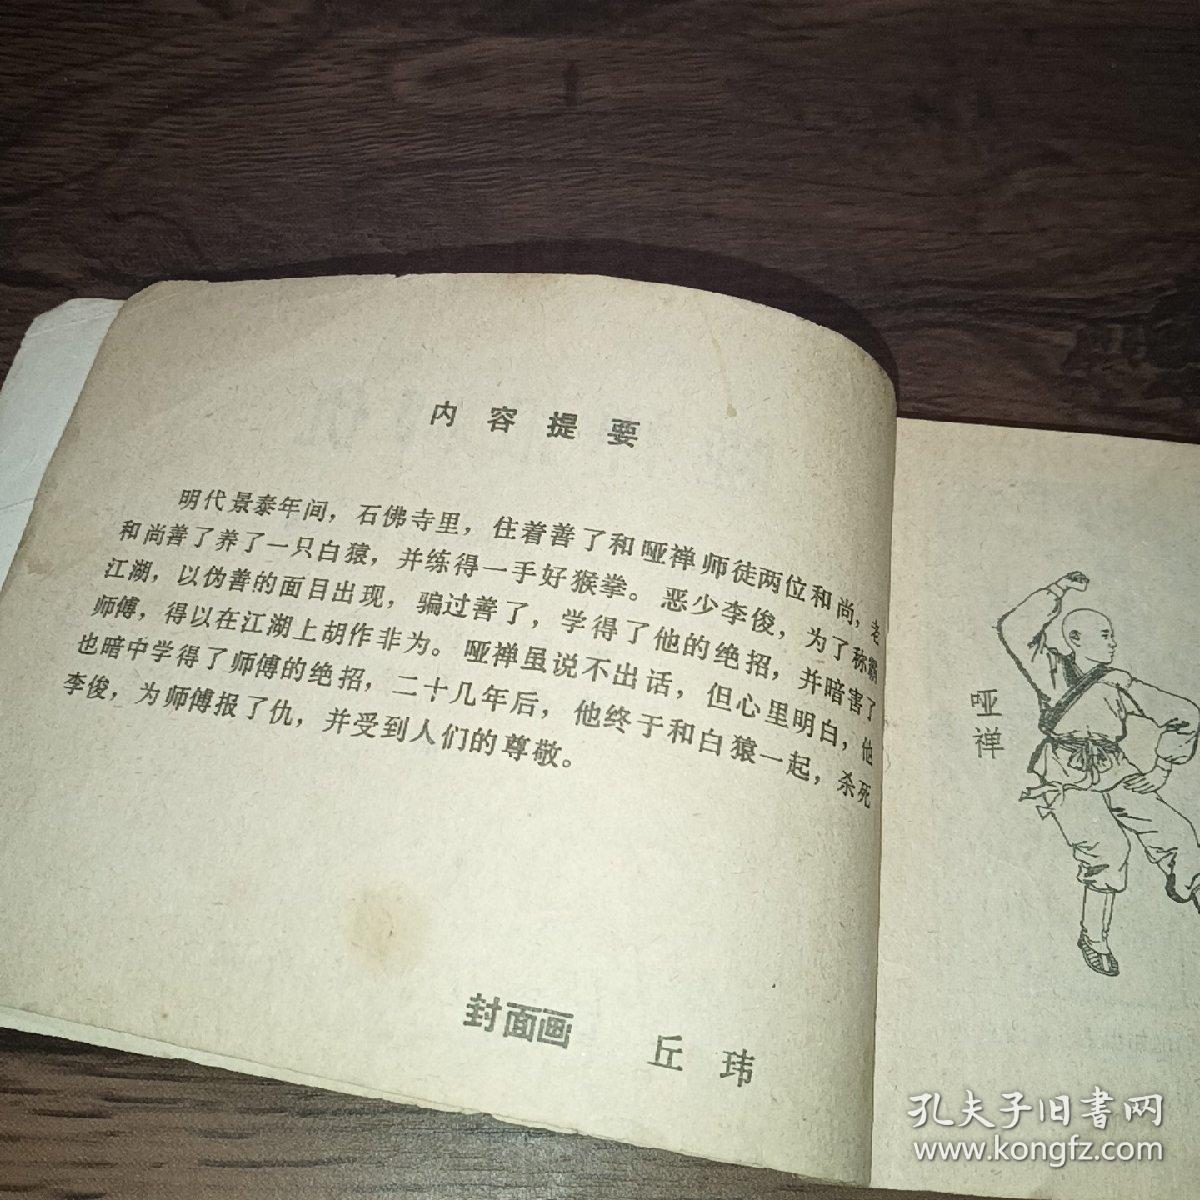 内容提要
明代景泰年间，石佛寺里，住着善了和哑禅师徒两位和尚，老
和尚善了养了一只白猿，并练得一手好猴拳。恶少李俊，为了称霸
江湖，以伪善的面目出现，骗过善了，学得了他的绝招，并暗害了
师傅，得以在江湖上胡作非为。哑禅虽说不出话，但心里明白，他
也暗中学得了师傅的绝招，二十几年后，他终于和白猿一起，杀死
李俊，为师傅报了仇，并受到人们的尊敬。
封面画 丘玮
哑禅
孔夫子旧书网
www.kongfz.com